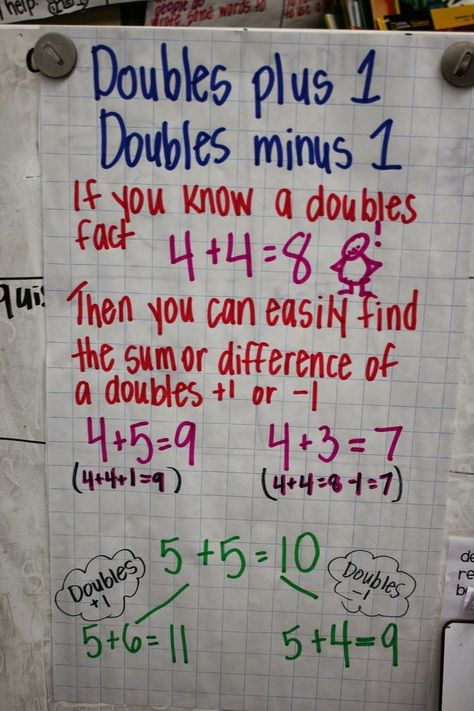 help.
people do
wrote some words to
Doubles plus 1
Doubles minus 1
If you know a doubles
fact
4+4=8
!
Then you can easily find
the sum or difference of
a doubles +1 or -1
4+5=9
4+3=7
(4+4+1=9)
(4+4=8-1=7)
5+5=10
Doubles
+1
Doubles
-1
5+6=11
5+4=9
quis
de
re
b